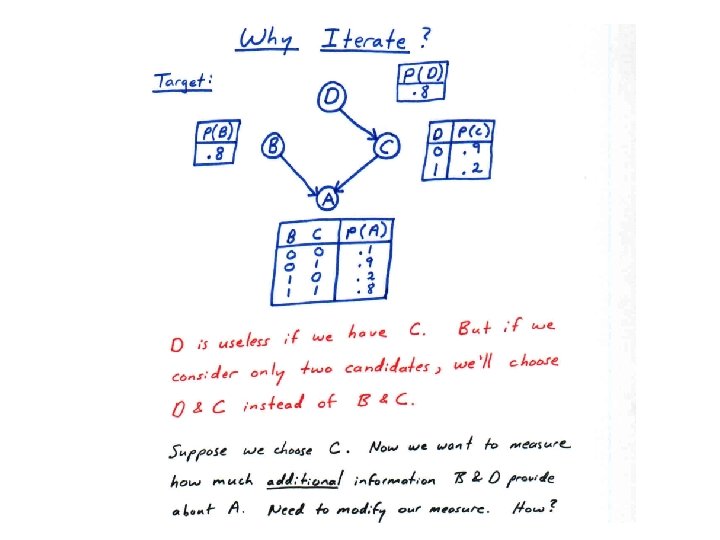 Why Iterate?
Target:
P(D)
.8
D
P(B)
.8
B
C
D P(c)
0 .9
1 .2
A
B C P(A)
0 0 .1
0 1 .9
1 0 .2
1 1 .8
D is useless if we have C. But if we
consider only two candidates, we'll choose
D & C instead of B & C.
Suppose we choose C. Now we want to measure
how much additional information B & D provide
about A. Need to modify our measure. How?